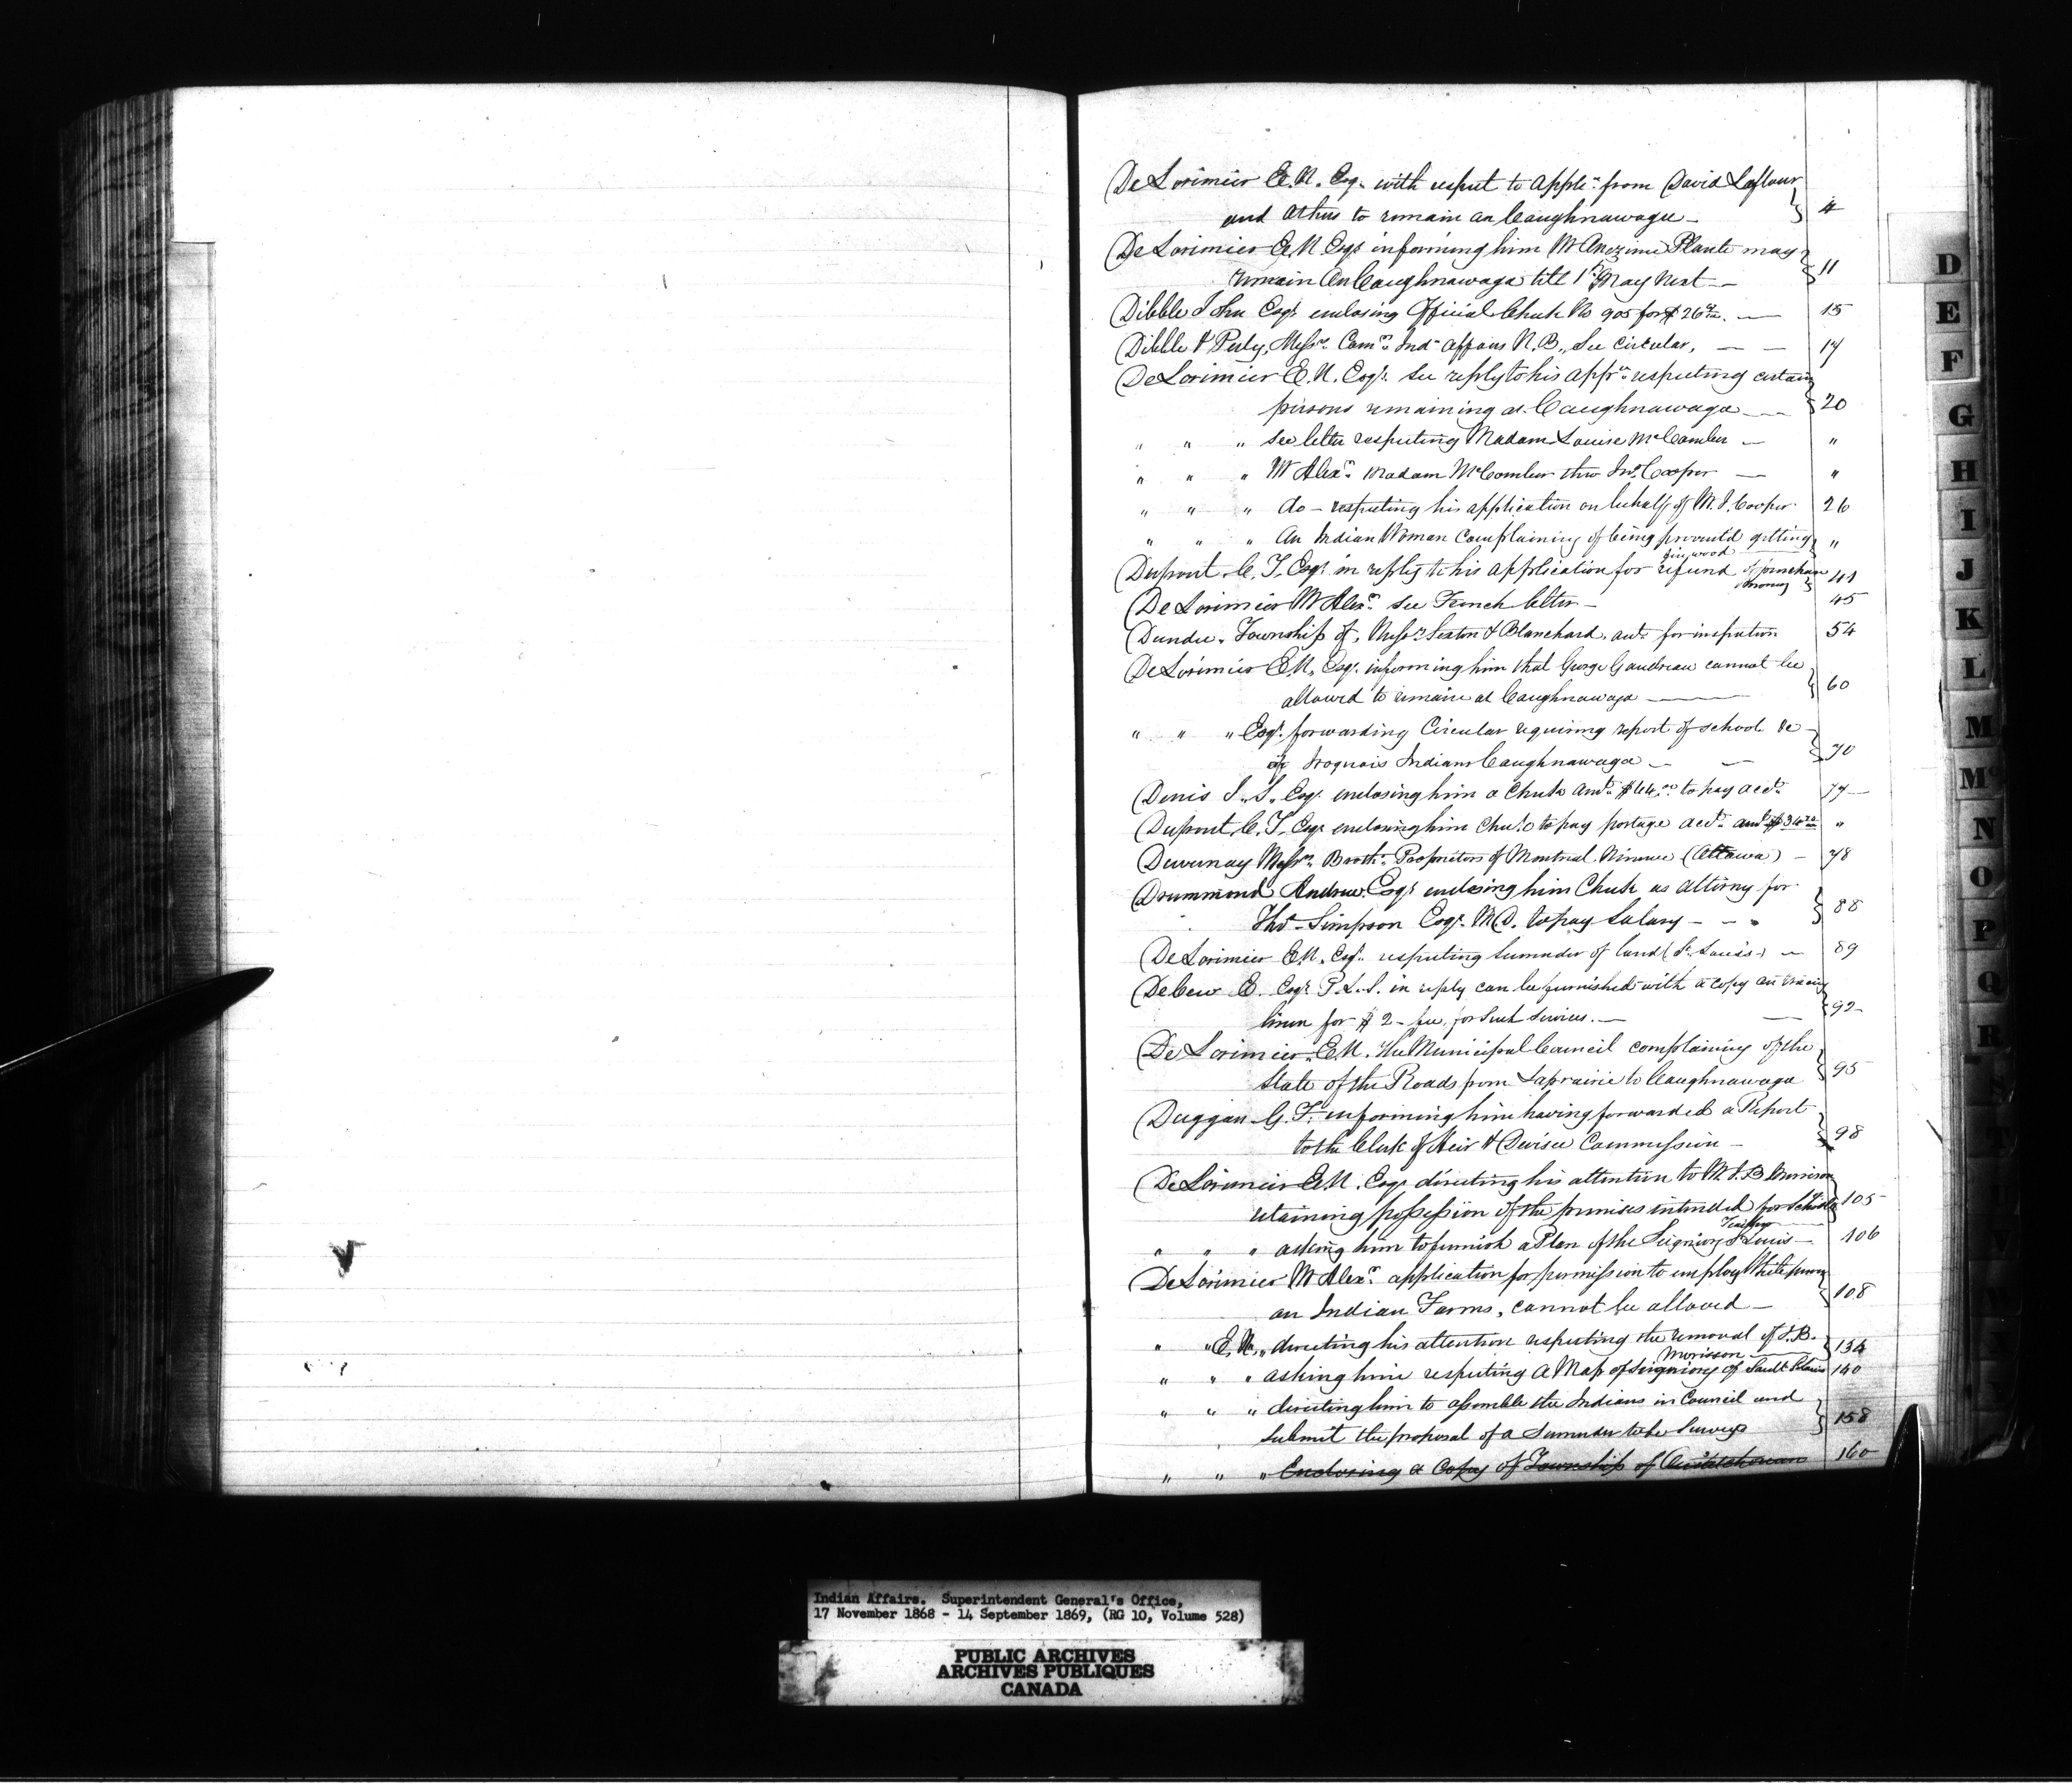 De Lorimier E.N. Esqr. with respect to Appln. from David Lafleur
and others to remain an Caughnawaga — 4
De Lorimier E.N. Esqr. informing him Mr Onezime Plante may
remain an Caughnawaga till 1st May next — 11
Dibble John Esqr. enclosing Official Check No 905 for $26 — 15
Dibble & Perly, Messrs. Comrs. Ind. affairs N.B., See Circular, — — 17
DeLorimier E.N. Esqr. see reply to his appn. respecting certain
persons remaining at Caughnawaga — 20
" " " see letter respecting Madam Louise McComber — "
" " " Mr Alexr. Madam McComber thro Jno. Cooper — "
" " " do — respecting his application on behalf of Mr. J. Cooper 26
" " " An Indian Woman complaining of being prevent'd getting "
firewood
Dupont C. T. Esqr. in reply to his application for refund of purchase 41
money
De Lorimier Mr Alexr. See French letter — 45
Dundee, Township of, Messrs. Seaton & Blanchard, for inspection 54
De Lorimier E.N. Esqr. informing him that George Gaudreau cannot be
allowed to remain at Caughnawaga — 60
" " " Esqr. forwarding Circular requiring report of school &c
of Iroquois Indians Caughnawaga — — 70
Denis Esqr. enclosing him a Check amt. to pay acct. 77
Dupont C. T. Esqr. enclosing him to pay postage acct. "
Duvernay Messrs. Broth. Proprietors of Montreal Minerve (Ottawa) — 78
Drummond Andrew Esqr. enclosing him Check as attorny for
Thos. Simpson Esqr. M.D. to pay Salary — — 88
De Lorimier E.N. Esqr. respecting Surrender of land (St. Louis) — 89
DeCew E. Esqr. P.L.S. in reply can be furnished with a copy on tracing
linen for $2 — fee, for such services. — 92
De Lorimier E.N. the Municipal Council complaining of the
State of the Roads from Laprairie to Caughnawaga 95
Duggan G. F. informing him having forwarded a Report
to the Clerk of Heir & Devisee Commission — 98
De Lorimier E.N. Esqr. directing his attention to Mr. J.B. Morrison
retaining possession of the premises intended for School 105
Teacher
" " " asking him to furnish a Plan of the Seigniory St Louis — 106
De Lorimier Mr Alexr. application for permission to employ White men
on Indian Farms, cannot be allowed — 108
" " E.N. " directing his attention respecting the removal of J.B. 134
Morisson
" " " asking him respecting a Map of Seigniory of Sault St Louis 140
" " " directing him to assemble the Indians in Council and
submit the proposal of a Surrender to be Surveyd 158
" " " Enclosing a Copy of Township of 160
D
E
F
G
H
I
J
K
L
M
Mc
N
O
P
Q
R
Indian Affairs. Superintendent General's Office,
17 November 1868 - 14 September 1869, (RG 10, Volume 528)
PUBLIC ARCHIVES
ARCHIVES PUBLIQUES
CANADA